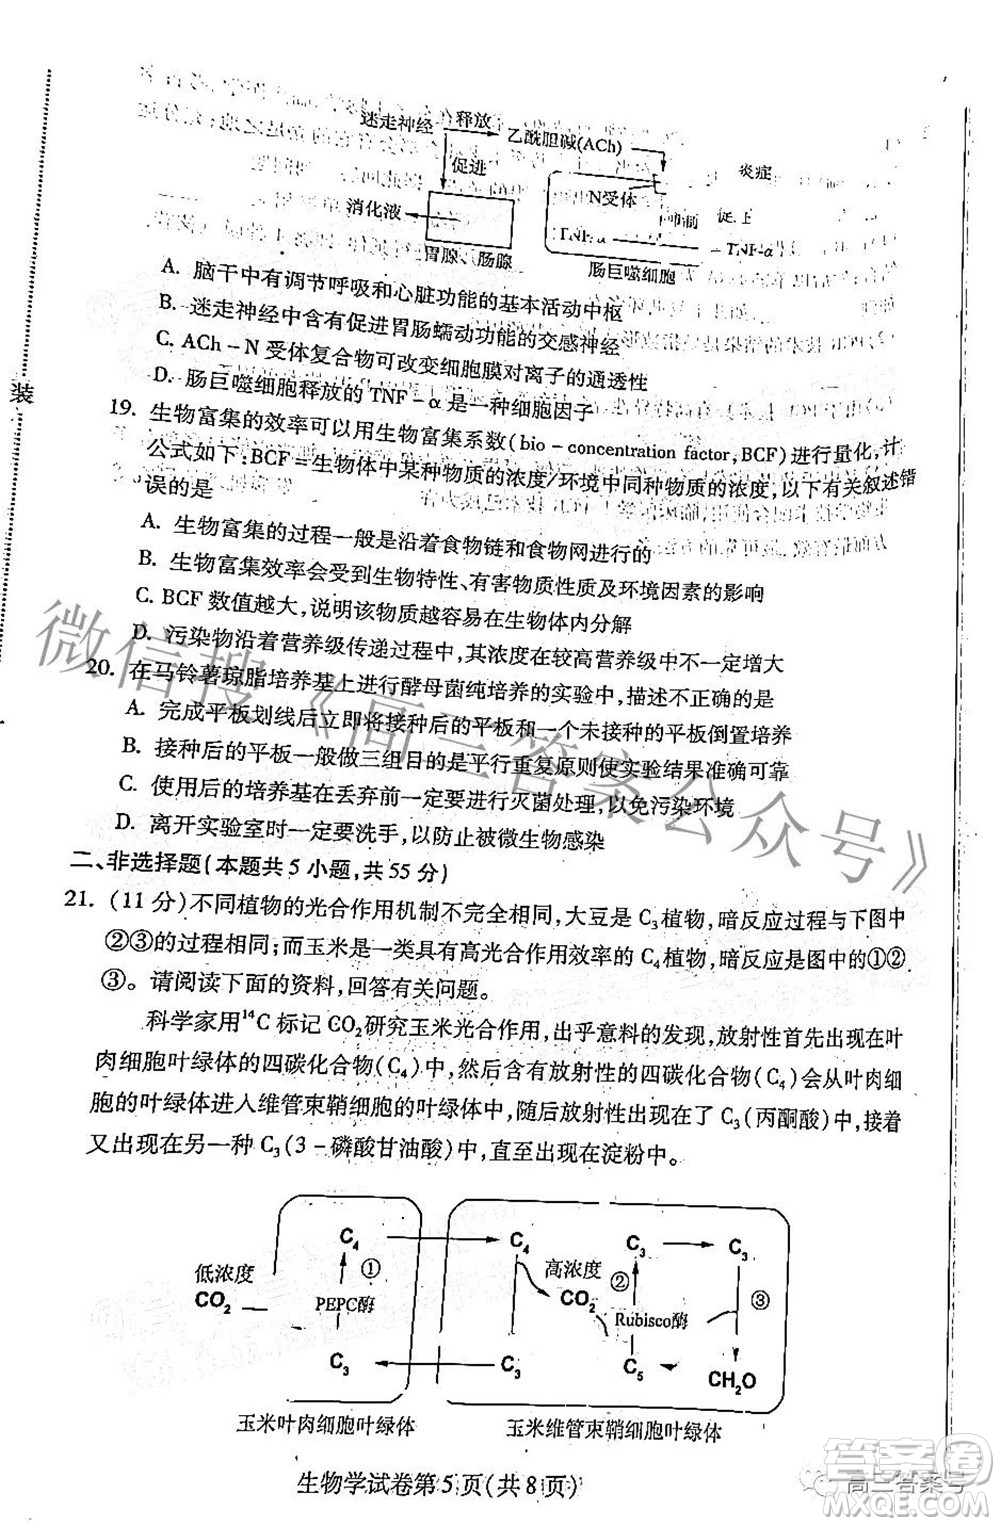 迷走神经 释放 乙酰胆碱(ACh)
促进 炎症
消化液 N受体 抑制 促上
TNF-α TNF-α
胃腺、肠腺 肠巨噬细胞
A. 脑干中有调节呼吸和心脏功能的基本活动中枢
B. 迷走神经中含有促进胃肠蠕动功能的交感神经
C. ACh-N受体复合物可改变细胞膜对离子的通透性
D. 肠巨噬细胞释放的TNF-α是一种细胞因子
19. 生物富集的效率可以用生物富集系数(bio-concentration factor,BCF)进行量化,计
公式如下:BCF=生物体中某种物质的浓度/环境中同种物质的浓度,以下有关叙述错
误的是
A. 生物富集的过程一般是沿着食物链和食物网进行的
B. 生物富集效率会受到生物特性、有害物质性质及环境因素的影响
C. BCF数值越大,说明该物质越容易在生物体内分解
D. 污染物沿着营养级传递过程中,其浓度在较高营养级中不一定增大
20. 在马铃薯琼脂培养基上进行酵母菌纯培养的实验中,描述不正确的是
A. 完成平板划线后立即将接种后的平板和一个未接种的平板倒置培养
B. 接种后的平板一般做三组目的是平行重复原则使实验结果准确可靠
C. 使用后的培养基在丢弃前一定要进行灭菌处理,以免污染环境
D. 离开实验室时一定要洗手,以防止被微生物感染
二、非选择题(本题共5小题,共55分)
21. (11分)不同植物的光合作用机制不完全相同,大豆是C3植物,暗反应过程与下图中
②③的过程相同;而玉米是一类具有高光合作用效率的C4植物,暗反应是图中的①②
③。请阅读下面的资料,回答有关问题。
科学家用14C标记CO2研究玉米光合作用,出乎意料的发现,放射性首先出现在叶
肉细胞叶绿体的四碳化合物(C4)中,然后含有放射性的四碳化合物(C4)会从叶肉细
胞的叶绿体进入维管束鞘细胞的叶绿体中,随后放射性出现在了C3(丙酮酸)中,接着
又出现在另一种C3(3-磷酸甘油酸)中,直至出现在淀粉中。
C4 C4 C3 C3
低浓度 ① 高浓度 ② ③
CO2 PEPC酶 CO2 Rubisco酶
C3 C3 C5 CH2O
玉米叶肉细胞叶绿体 玉米维管束鞘细胞叶绿体
生物学试卷第5页(共8页)
装
微信搜《高三答案公众号》
高三答案号
答案圈
MXQE.COM